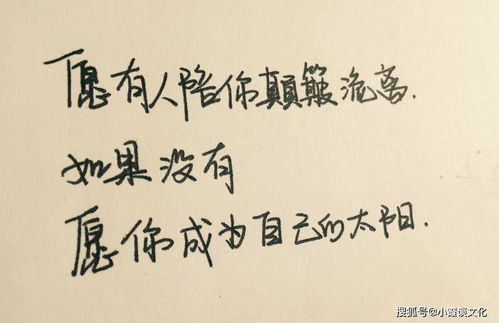 愿有人陪你颠簸流离.
如果没有
愿你成为自己的太阳.
搜狐号@小霞谈文化